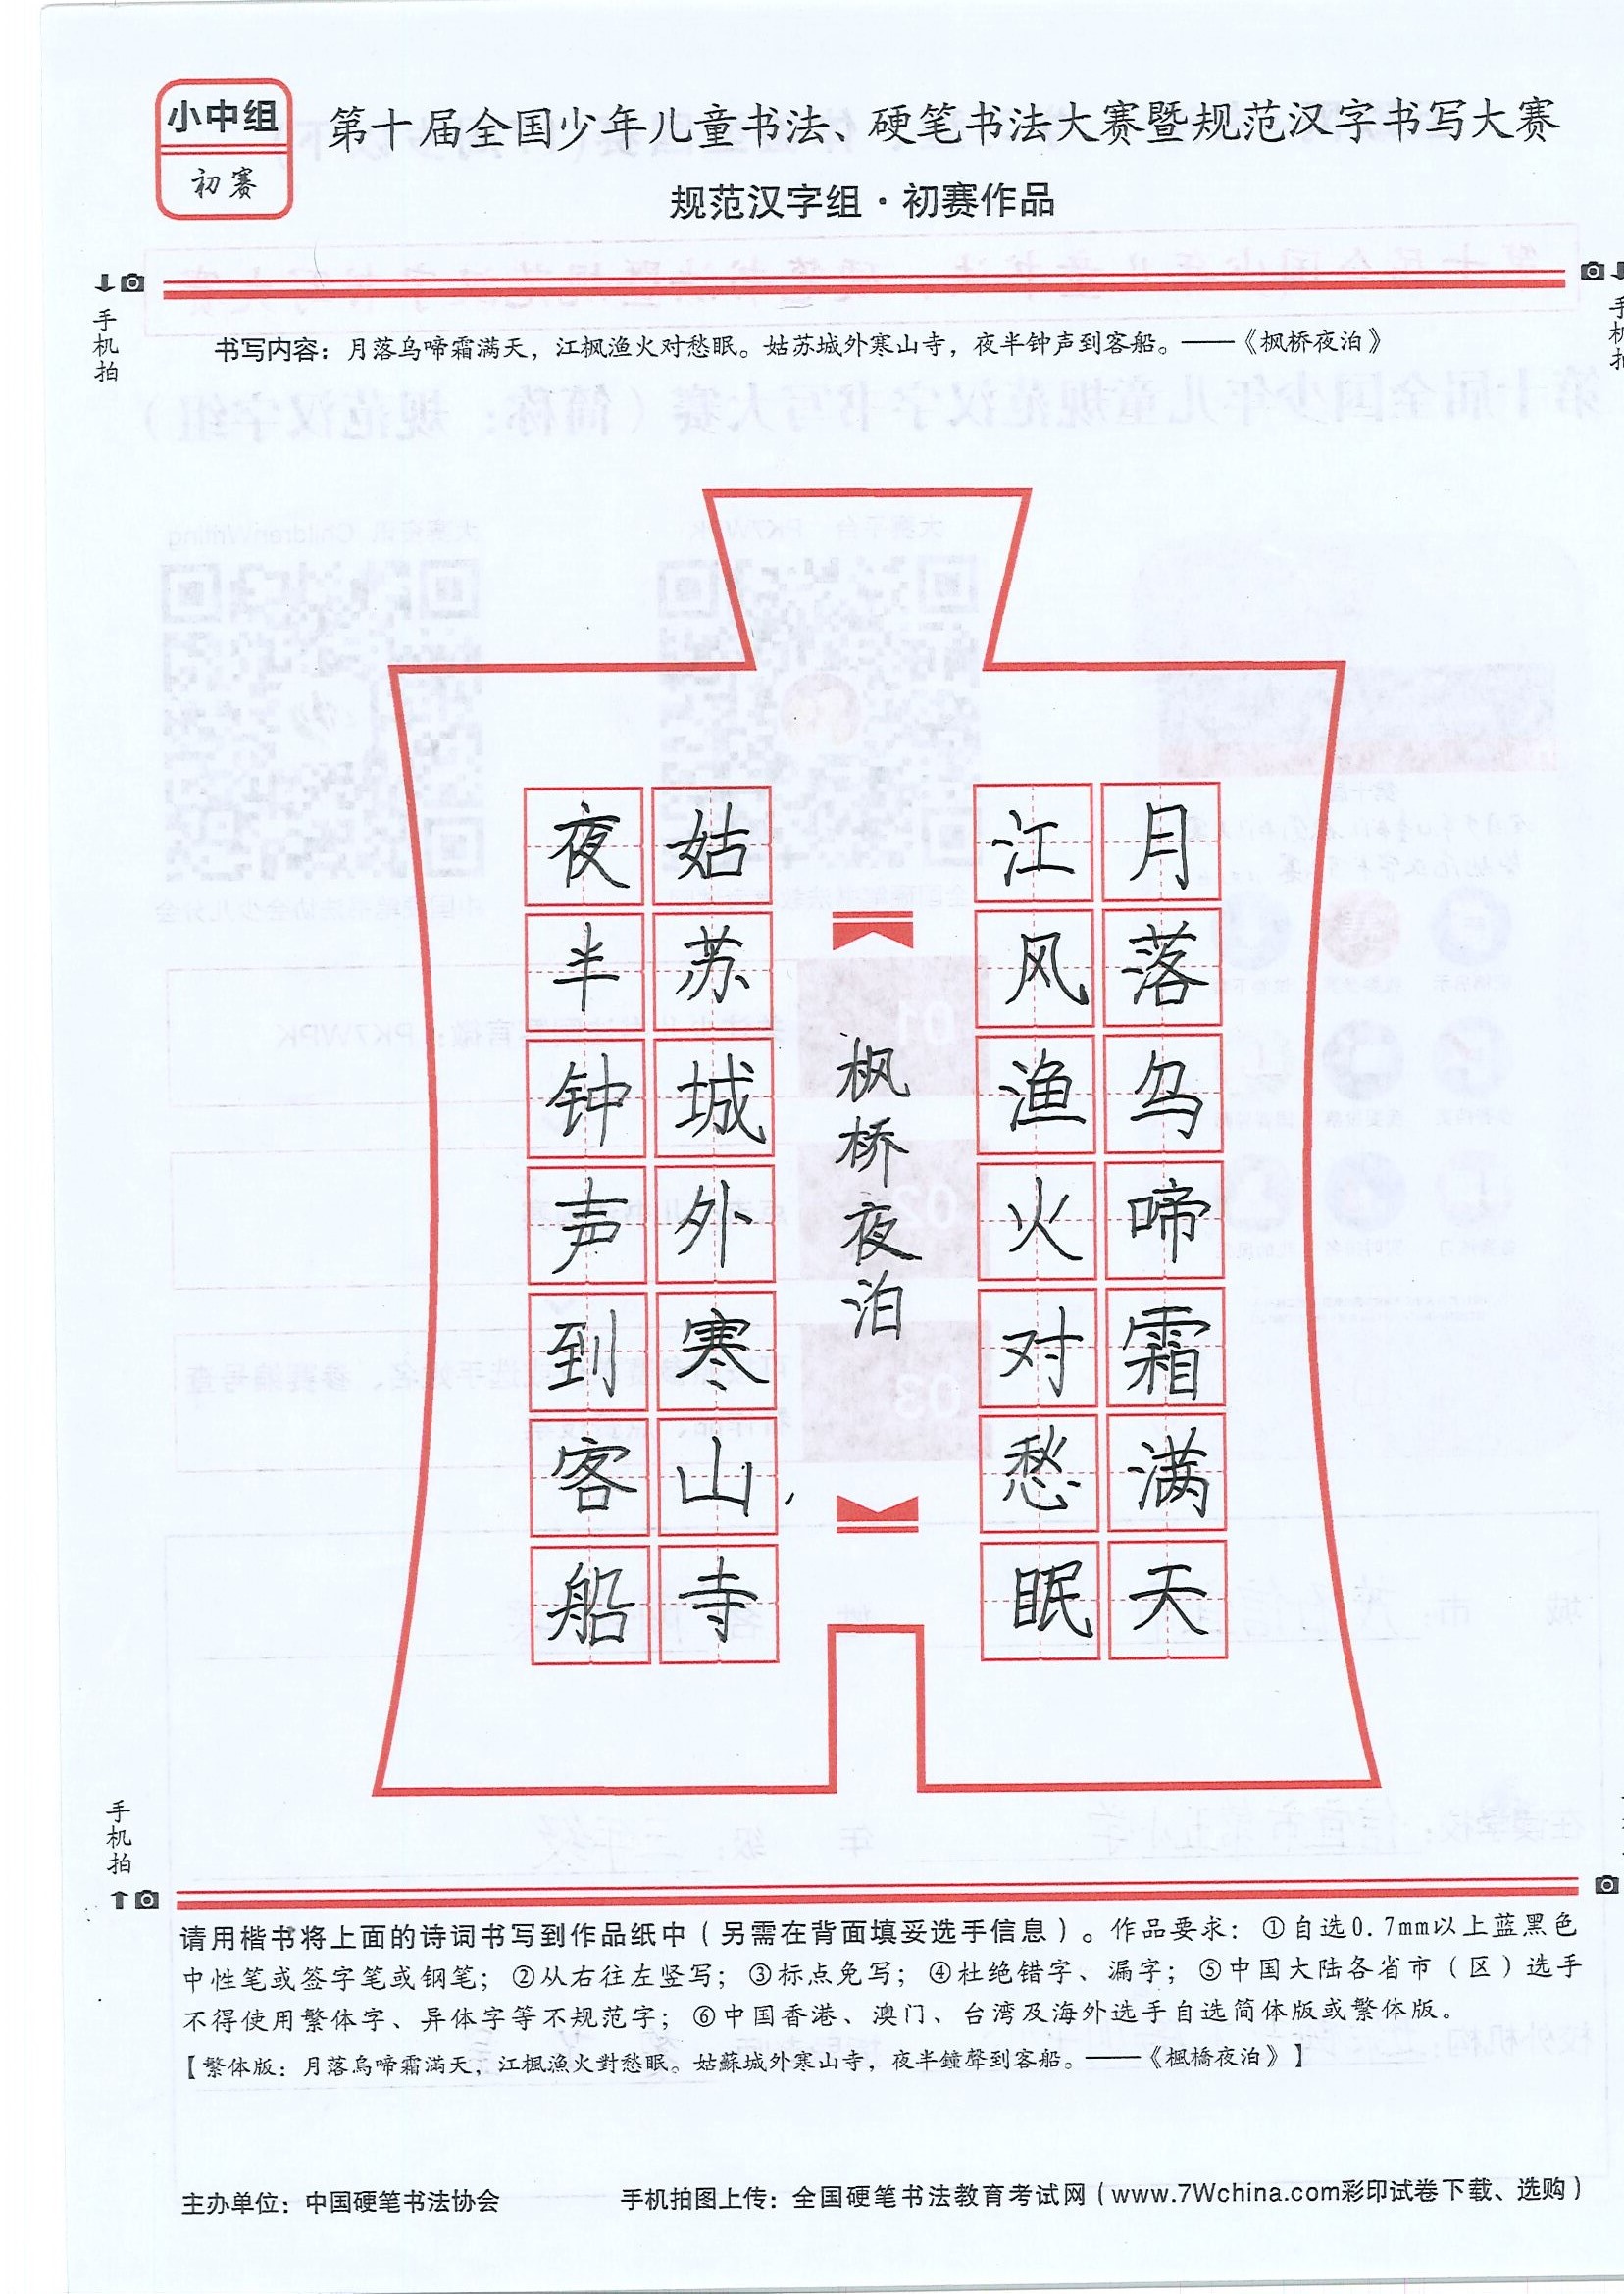 小中组
初赛
第十届全国少年儿童书法、硬笔书法大赛暨规范汉字书写大赛
规范汉字组·初赛作品
手机拍
手机拍
书写内容：月落乌啼霜满天，江枫渔火对愁眠。姑苏城外寒山寺，夜半钟声到客船。——《枫桥夜泊》
月落乌啼霜满天
江风渔火对愁眠
枫桥夜泊
姑苏城外寒山寺
夜半钟声到客船
手机拍
请用楷书将上面的诗词书写到作品纸中（另需在背面填妥选手信息）。作品要求：①自选0.7mm以上蓝黑色
中性笔或签字笔或钢笔；②从右往左竖写；③标点免写；④杜绝错字、漏字；⑤中国大陆各省市（区）选手
不得使用繁体字、异体字等不规范字；⑥中国香港、澳门、台湾及海外选手自选简体版或繁体版。
【繁体版：月落烏啼霜滿天，江楓漁火對愁眠。姑蘇城外寒山寺，夜半鐘聲到客船。——《楓橋夜泊》】
主办单位：中国硬笔书法协会
手机拍图上传：全国硬笔书法教育考试网（www.7Wchina.com彩印试卷下载、选购）